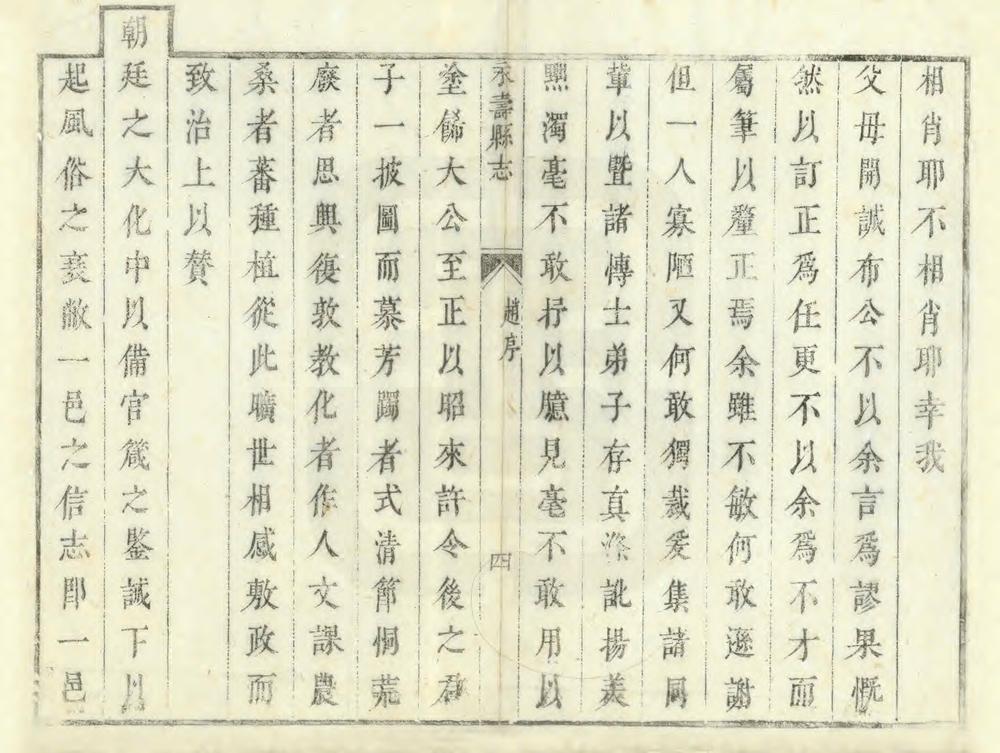 相肖耶不相肖耶幸我
父母開誠布公不以余言爲謬果慨
然以訂正爲任更不以余爲不才而
屬筆以釐正焉余雖不敏何敢遜謝
但一人寡陋又何敢獨裁爰集諸同
輩以曁諸博士弟子存真滌訛揚美
黑濁毫不敢抒以臆見毫不敢用以
永壽縣志
趙序
四
塗餙大公至正以昭來許令後之君
子一披圖而慕芳躅者式清節恫荒
廢者思興復敦教化者作人文課農
桑者蕃種植從此曠世相感敷政而
致治上以贊
朝廷之大化中以備官箴之鑒誠下以
起風俗之衰敝一邑之信志卽一邑